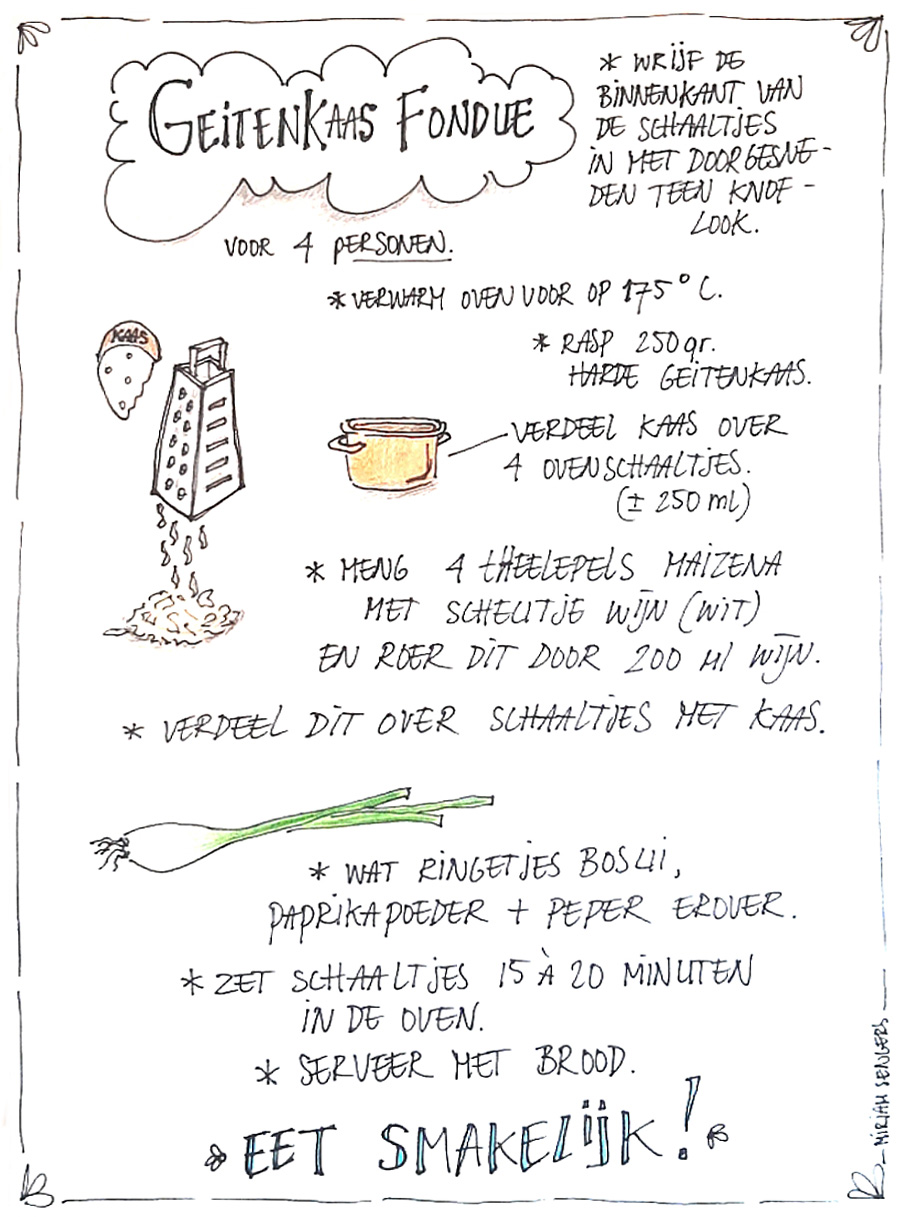 GEITENKAAS FONDUE
VOOR 4 PERSONEN.
* WRIJF DE
BINNENKANT VAN
DE SCHAALTJES
IN MET DOORGESNE-
DEN TEEN KNOF-
LOOK.
* VERWARM OVEN VOOR OP 175° C.
* RASP 250 gr.
HARDE GEITENKAAS.
KAAS
VERDEEL KAAS OVER
4 OVENSCHAALTJES.
(± 250 ml)
* MENG 4 THEELEPELS MAIZENA
MET SCHEUTJE WIJN (WIT)
EN ROER DIT DOOR 200 Ml WIJN.
* VERDEEL DIT OVER SCHAALTJES MET KAAS.
* WAT RINGETJES BOSUI,
PAPRIKAPOEDER + PEPER EROVER.
* ZET SCHAALTJES 15 À 20 MINUTEN
IN DE OVEN.
* SERVEER MET BROOD.
EET SMAKELIJK!
MIRJAM SENGERS